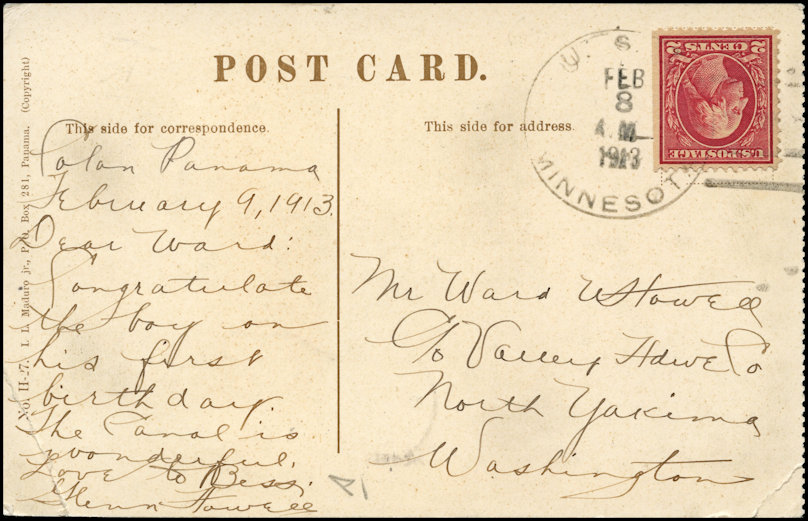 POST CARD.
This side for correspondence.
This side for address.
No. II-27. I. L. Maduro jr., P. O. Box 281, Panama. (Copyright)
U. S.
FEB
8
A.M.
1913
MINNESOT
2 CENTS 2
U.S. POSTAGE
Colon Panama
February 9, 1913.
Dear Ward:
Congratulate
the boy on
his first
birthday.
The Canal is
wonderful.
Love to Bess,
Glenn Howell
Mr Ward W Howell
c/o Valley Hdwe Co
North Yakima
Washington